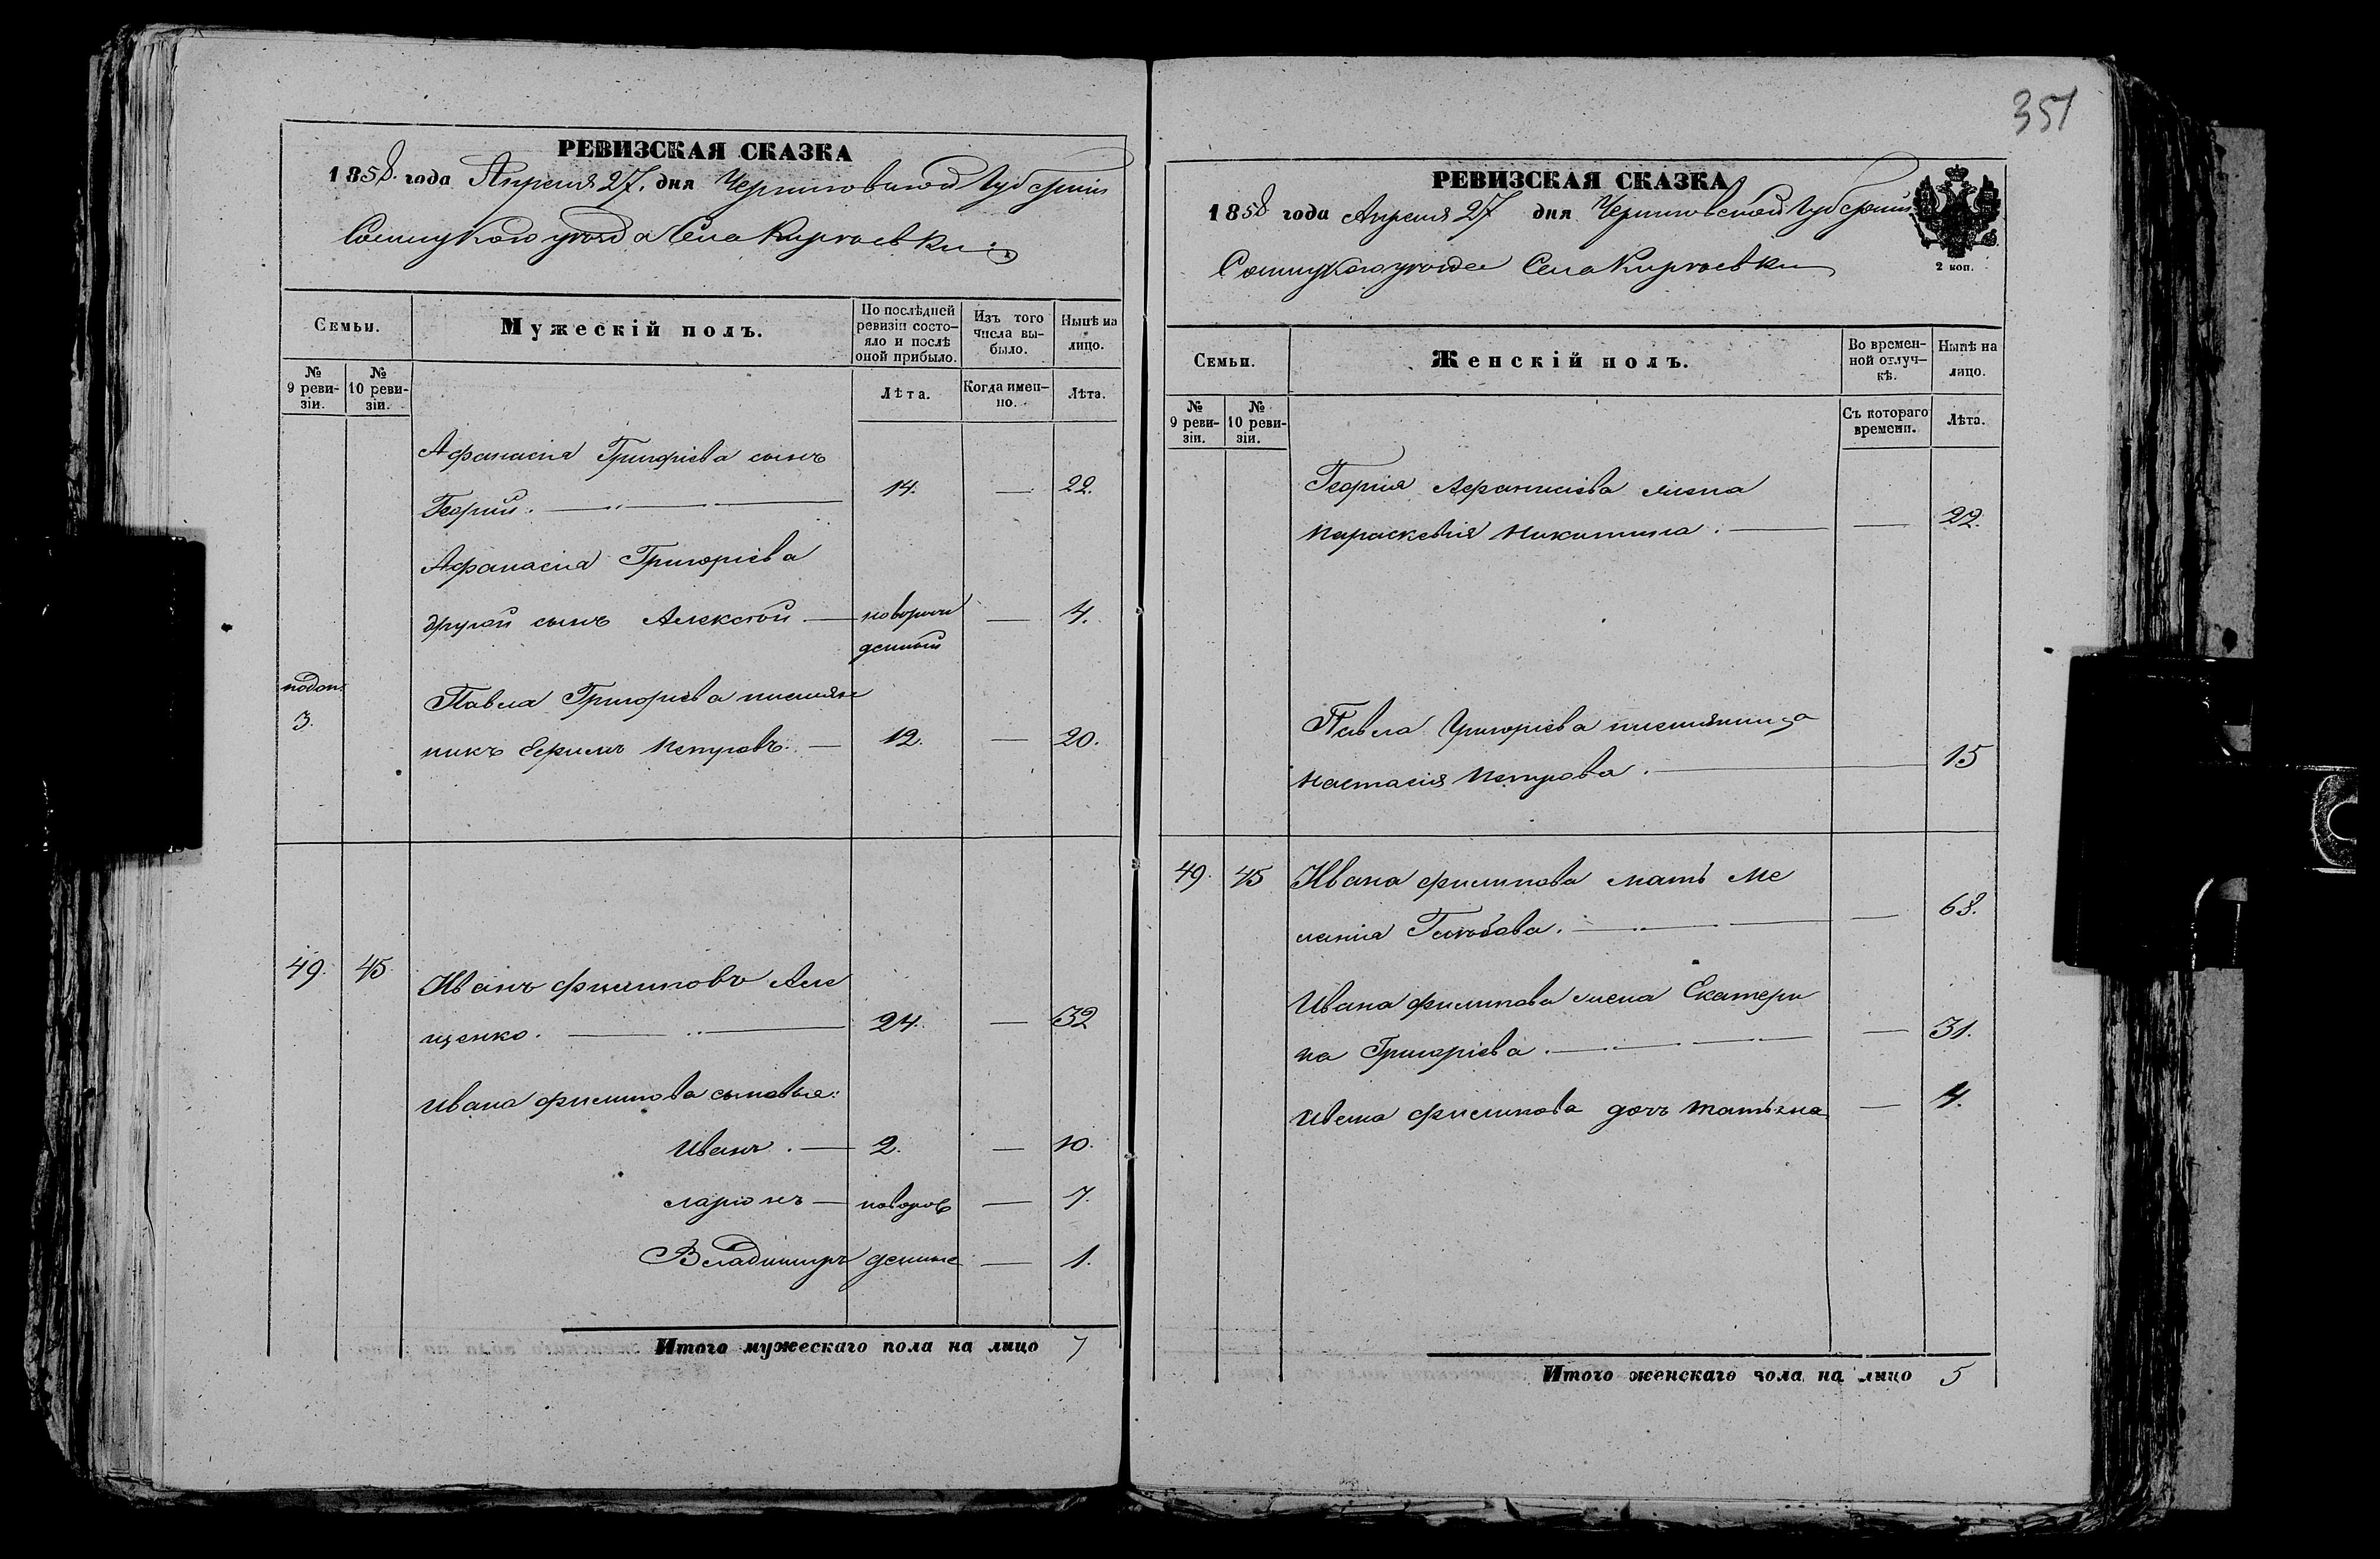 351
РЕВИЗСКАЯ СКАЗКА
1858. года Апреля 27. дня Черниговской Губернии
Сосницкого уезда Села Киріевки
Семьи.
Мужескій полъ.
По послѣдней ревизіи состо-
яло и послѣ оной прибыло.
Изъ того числа вы-
было.
Нынѣ на лицо.
№ 9 реви-
зіи.
№ 10 реви-
зіи.
Лѣта.
Когда имен-
но.
Лѣта.
Афанасія Григоріева сынъ
Георгий. — 14. — 22.
Афанасія Григоріева
другой сынъ Алексей — новорож
денный — 4.
подъ №
3.
Павла Григоріева племян
никъ Ефимъ Петровъ. — 12. — 20.
49. 45 Иванъ Филиповъ Але
щенко. — 24. — 32
Ивана Филипова сыновья:
Иванъ. — 2. — 10.
Ларіонъ — новорож — 7.
Владимиръ денные — 1.
Итого мужескаго пола на лицо 7
РЕВИЗСКАЯ СКАЗКА
1858 года Апреля 27 дня Черниговской Губернии
Сосницкого уезда Села Киріевки
2 коп.
Семьи.
Женскій полъ.
Во времен-
ной отлуч-
кѣ.
Нынѣ на лицо.
№ 9 реви-
зіи.
№ 10 реви-
зіи.
Съ котораго времени.
Лѣта.
Георгия Афанасіева жена
Параскевія Никитина. — 22.
Павла Григоріева племянница
Настасія Петрова. — 15
49. 45 Ивана Филипова мать Ме
ланія — 63.
Ивана Филипова жена Екатери
на Григоріева. — 31.
Ивана Филипова дочь Татьяна — 4.
Итого женскаго пола на лицо 5